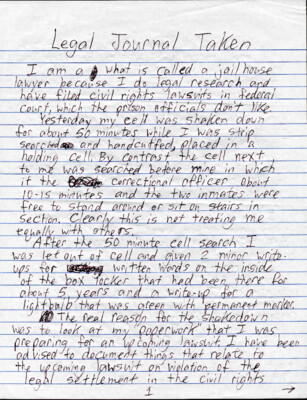 Legal Journal Taken
I am a what is called a jailhouse
lawyer because I do legal research and
have filed civil rights lawsuits in federal
court, which the prison officials don't like.
Yesterday my cell was shaken down
for about 50 minutes while I was strip
searched and handcuffed, placed in a
holding cell. By contrast the cell next
to me was searched before mine in which
it the correctional officer about
10-15 minutes and the two inmates were
free to stand around or sit on stairs in
section. Clearly this is not treating me
equally with others.
After the 50 minute cell search I
was let out of cell and given 2 minor write-
ups for written words on the inside
of the box locker that had been there for
about 5 years and a write-up for a
lightbulb that was green with permanent marker.
The real reason for the shakedown
was to look at my "paperwork" that I was
preparing for an upcoming lawsuit. I have been
advised to document things that relate to
the upcoming lawsuit on violation of the
legal settlement in the civil rights
1